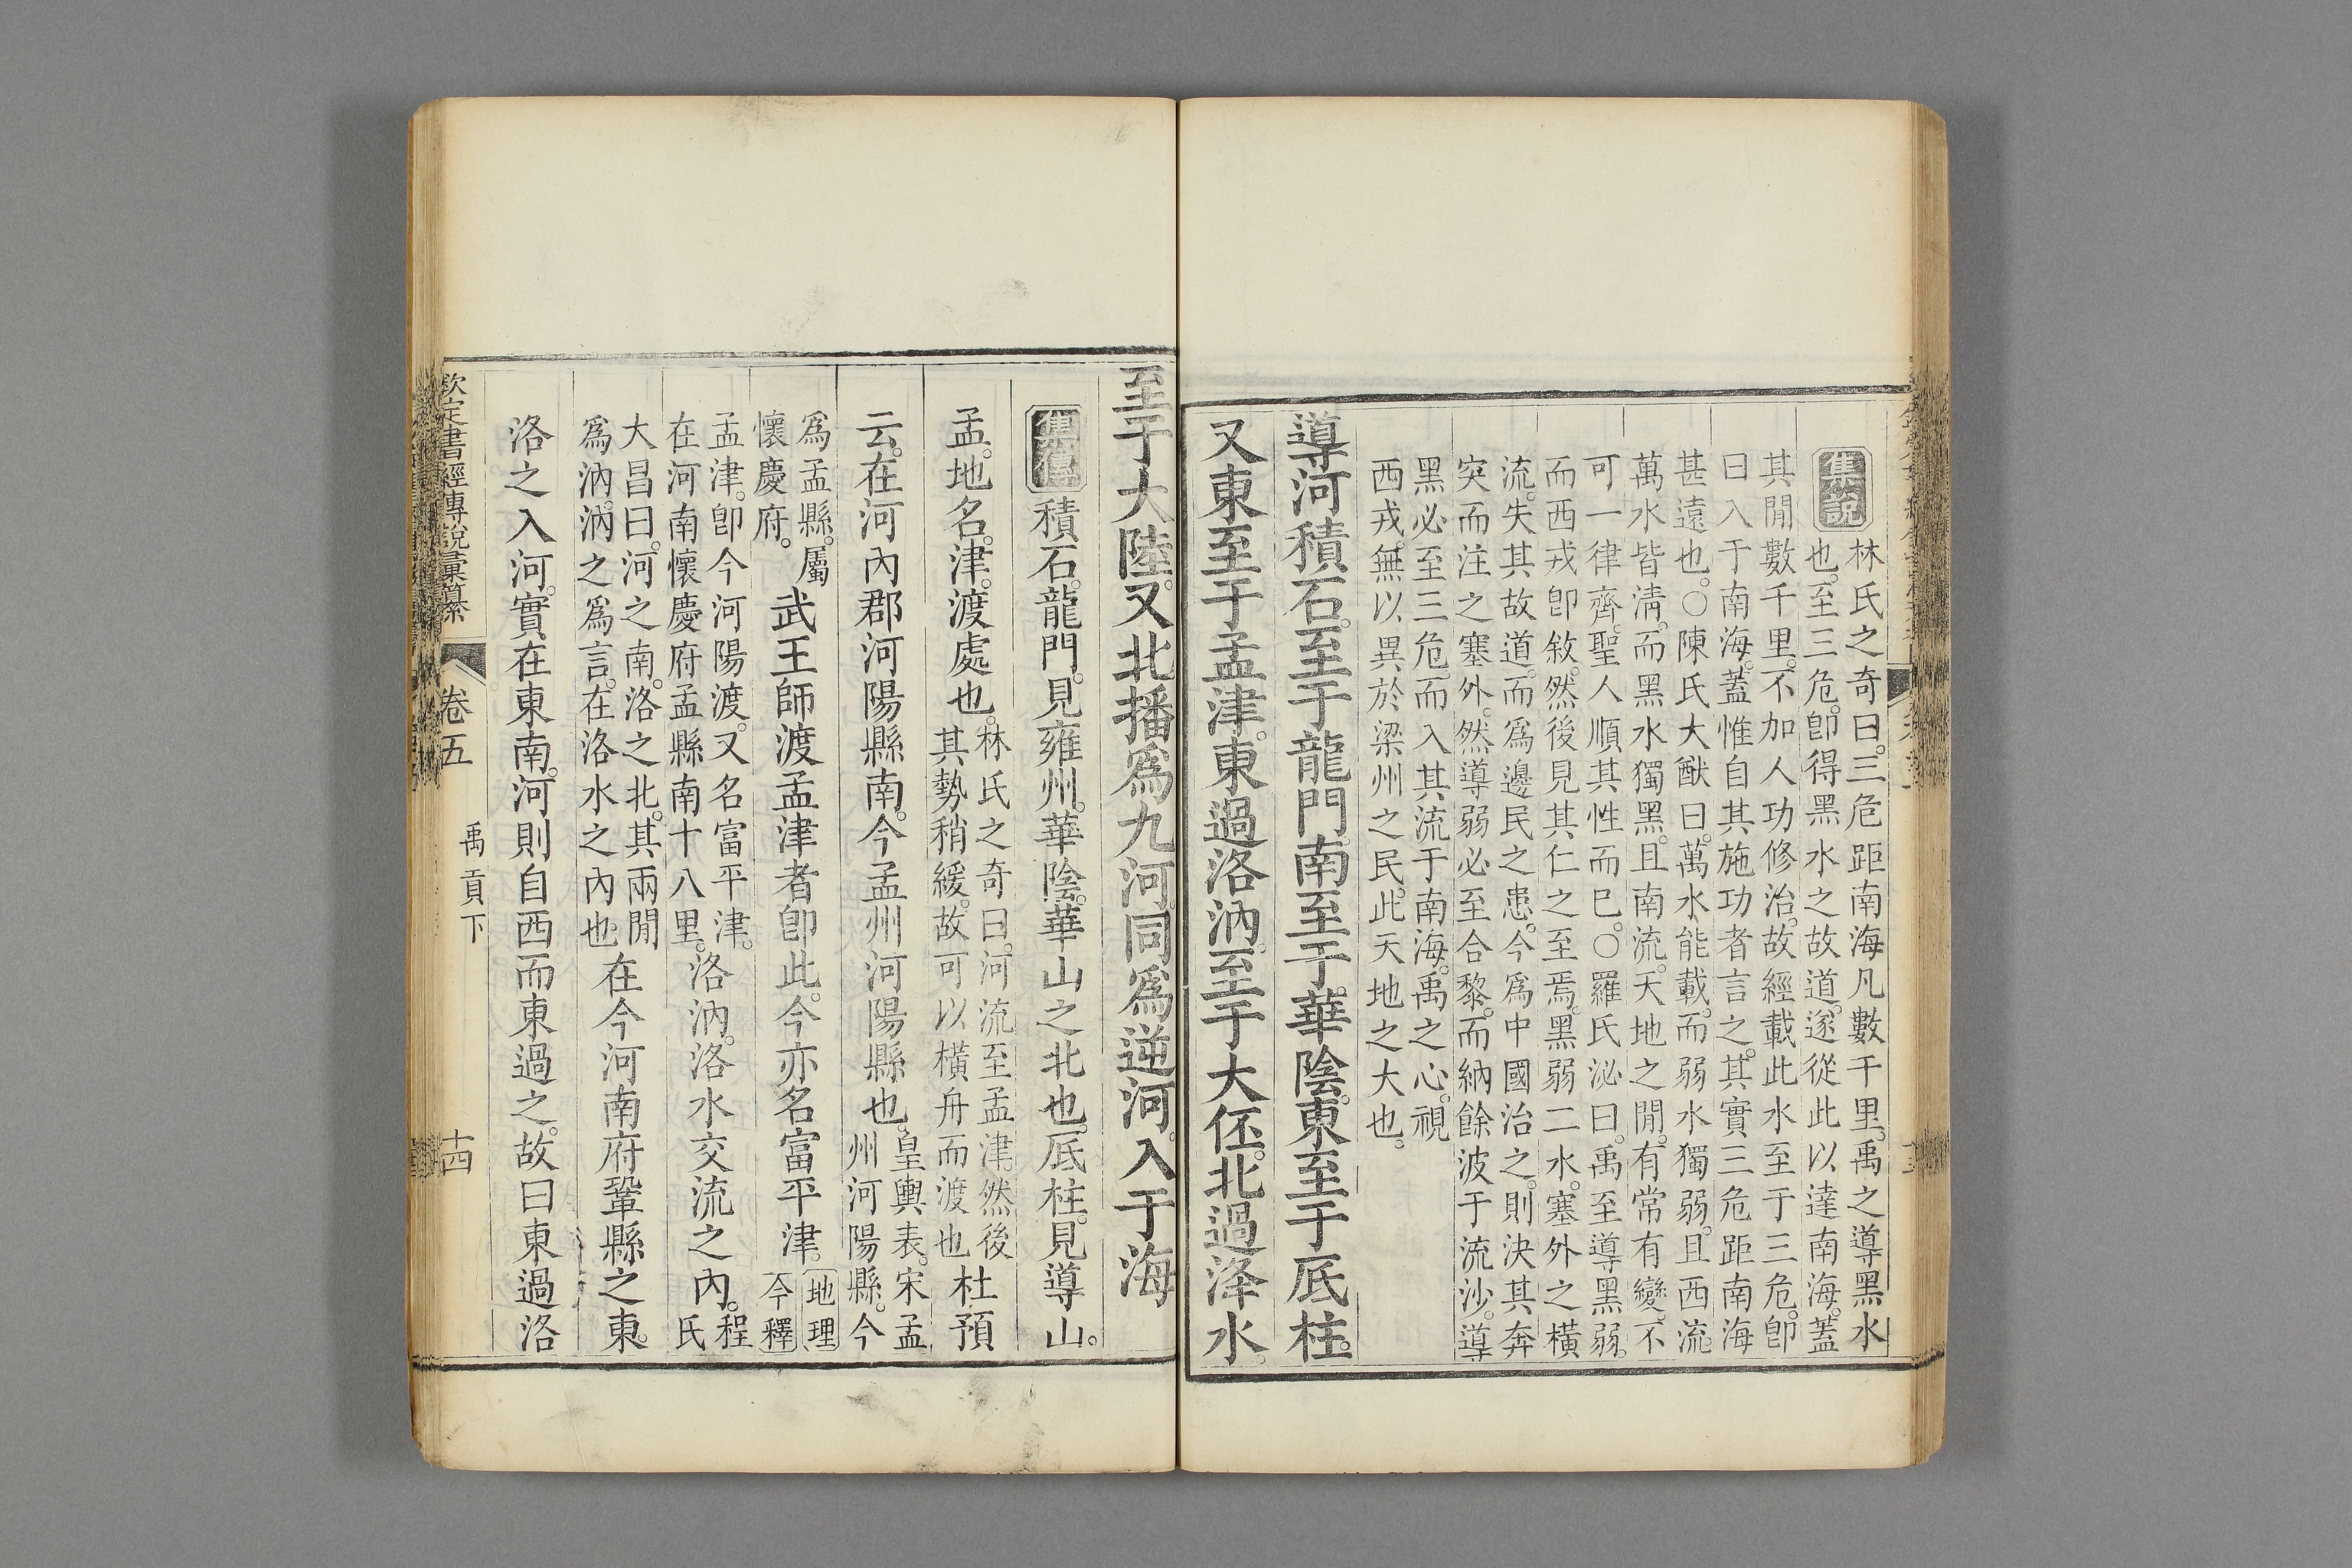 集說
林氏之奇曰。三危距南海凡數千里。禹之導黑水
也。至三危。卽得黑水之故道。遂從此以達南海。蓋
其閒數千里。不加人功修治。故經載此水至于三危。卽
曰入于南海。蓋惟自其施功者言之。其實三危距南海
甚遠也。○陳氏大猷曰。萬水能載。而弱水獨弱。且西流。
萬水皆淸。而黑水獨黑。且南流。天地之閒。有常有變。不
可一律齊。聖人順其性而已。○羅氏泌曰。禹至導黑弱。
而西戎卽敘。然後見其仁之至焉。黑弱二水。塞外之橫
流。失其故道。而爲邊民之患。今爲中國治之。則決其奔
突而注之塞外。然導弱必至合黎。而納餘波于流沙。導
黑必至三危。而入其流于南海。禹之心。視
西戎。無以異於梁州之民。此天地之大也。
導河積石。至于龍門。南至于華陰。東至于厎柱。
又東至于孟津。東過洛汭。至于大伾。北過洚水。
至于大陸。又北播爲九河。同爲逆河。入于海
集傳
積石。龍門。見雍州。華陰。華山之北也。厎柱。見導山。
孟。地名。津。渡處也。
林氏之奇曰。河流至孟津。然後
其勢稍緩。故可以橫舟而渡也
杜預
云。在河內郡河陽縣南。今孟州河陽縣也。
皇輿表。宋孟
州河陽縣。今
爲孟縣。屬
懷慶府。
武王師渡孟津者卽此。今亦名富平津。
地理
今釋
孟津。卽今河陽渡。又名富平津。
在河南懷慶府孟縣南十八里。
洛汭。洛水交流之內。
程
氏
大昌曰。河之南。洛之北。其兩閒
爲汭。汭之爲言。在洛水之內也
在今河南府鞏縣之東。
洛之入河。實在東南。河則自西而東過之。故曰東過洛
欽定書經傳說彙纂
卷五
禹貢下
十四